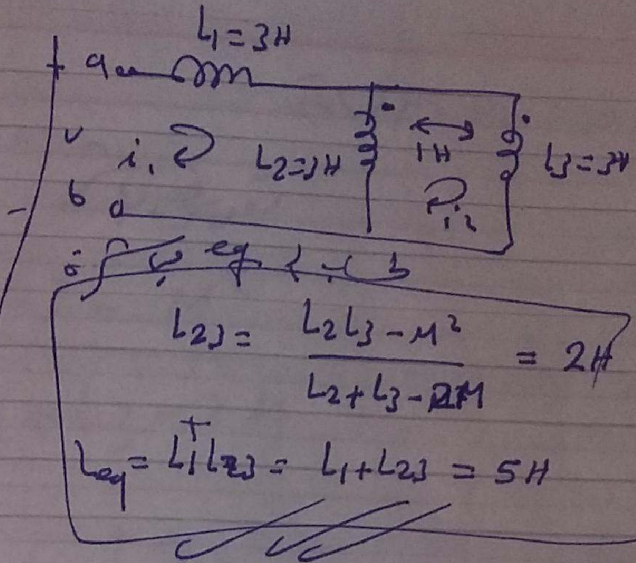 L1 = 3H
+ a
v i1 L2=3H 1H L3=3H
- b i2
L23 = L2L3 - M² / L2+L3-2M = 2H
Leq = L1 + L23 = L1+L23 = 5H